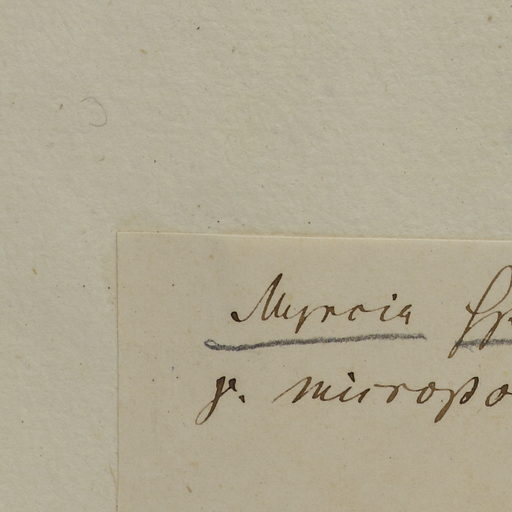 Myrcia sp
γ. micropo